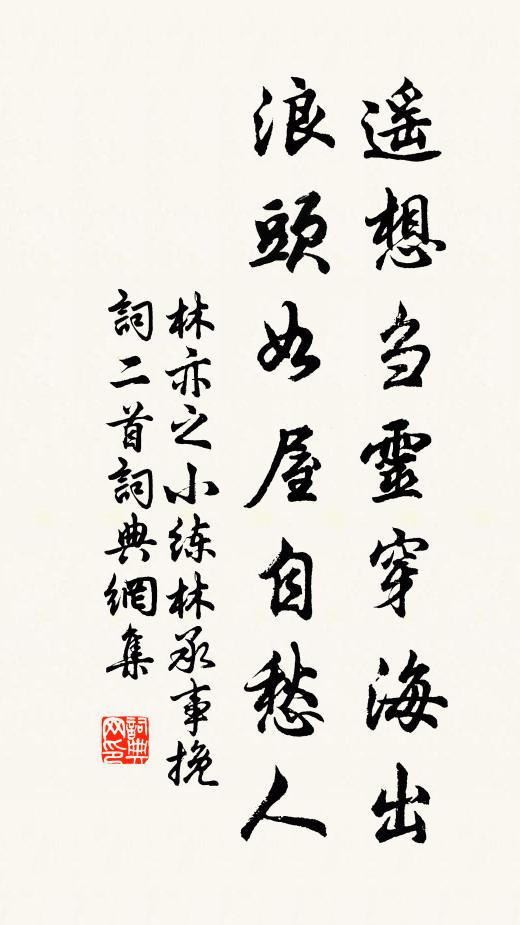 遥想刍靈穿海出
浪頭如屋自愁人
林亦之小练林承事挽
詞二首詞典網集
詞典
网印